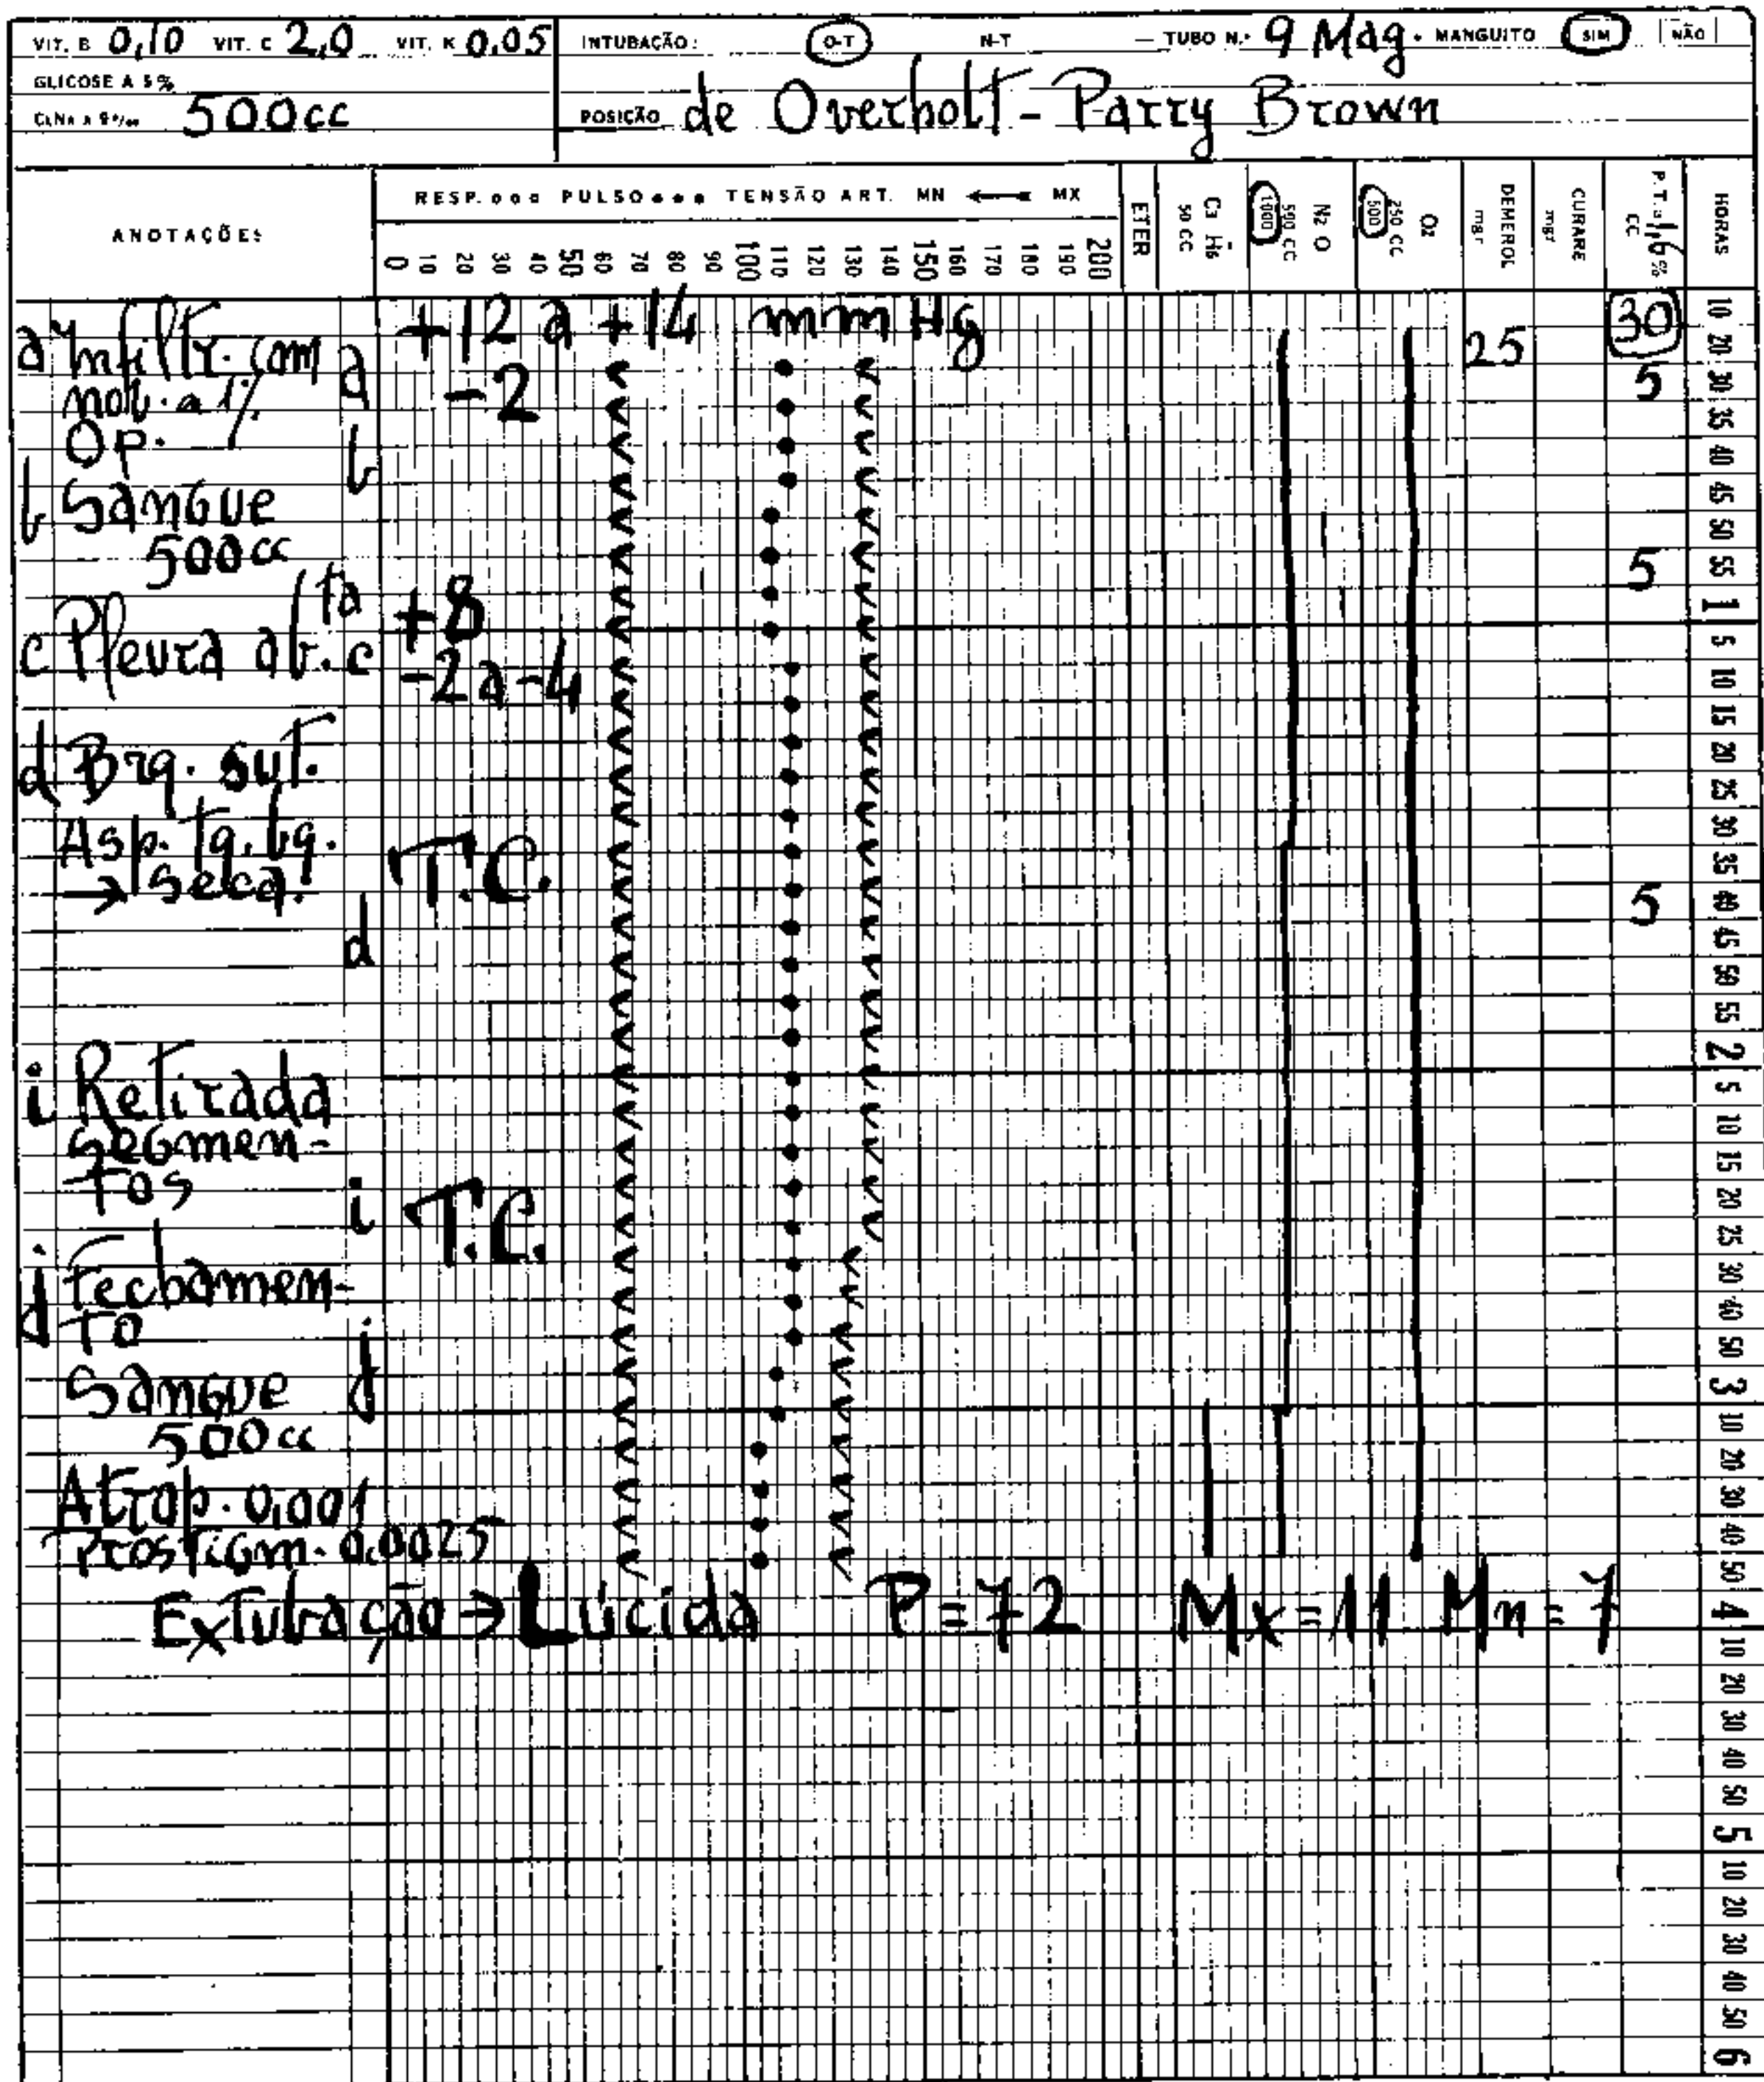 VIT. B 0,10 VIT. C 2,0 VIT. K 0.05
GLICOSE A 5%
500cc
INTUBAÇÃO: O-T N-T — TUBO N.º 9 Mag. MANGUITO SIM NÃO
POSIÇÃO de Overholt - Parry Brown
ANOTAÇÕES
RESP. o o o PULSO ● ● ● TENSÃO ART. MN ←→ MX
0 10 20 30 40 50 60 70 80 90 100 110 120 130 140 150 160 170 180 190 200
ETER
C3 H6 50 CC
N2 O 500 CC 1000
O2 250 CC 500
DEMEROL mgr
CURARE mgr
P.T. a % CC
HORAS
10 20 30 35 40 45 50 55 1
5 10 15 20 25 30 35 40 45 50 55 2
5 10 15 20 25 30 40 50 3
10 20 30 40 50 4
10 20 30 40 50 5
10 20 30 40 50 6
+12 a +14 mm Hg 25 30
a Infiltr. com a -2 5
nov. a 1%
Op. b
b Sangue
500cc 5
+8
c Pleura ab. c -2 a -4
d Brq. sut.
Asp. Tq. bq. T.C.
→ seca! 5
d
i Retirada
segmen-
tos i T.C.
j Fechamen-
to
Sangue j
500cc
Atrop. 0,001
Prostigm. 0.0025
Extubação → Lúcida P = 72 Mx = 11 Mn = 7